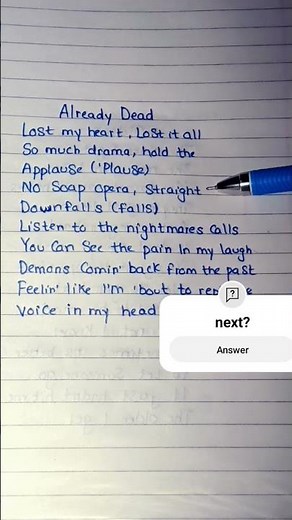 Already Dead
Lost my heart, Lost it all
So much drama, hold the
Applause ('Plause)
No Soap Opera, Straight
Downfalls (falls)
Listen to the nightmares calls
You Can See the pain In my laugh
Demons Comin' back from the past
Feelin' like I'm 'bout to
Voice in my head
next?
Answer